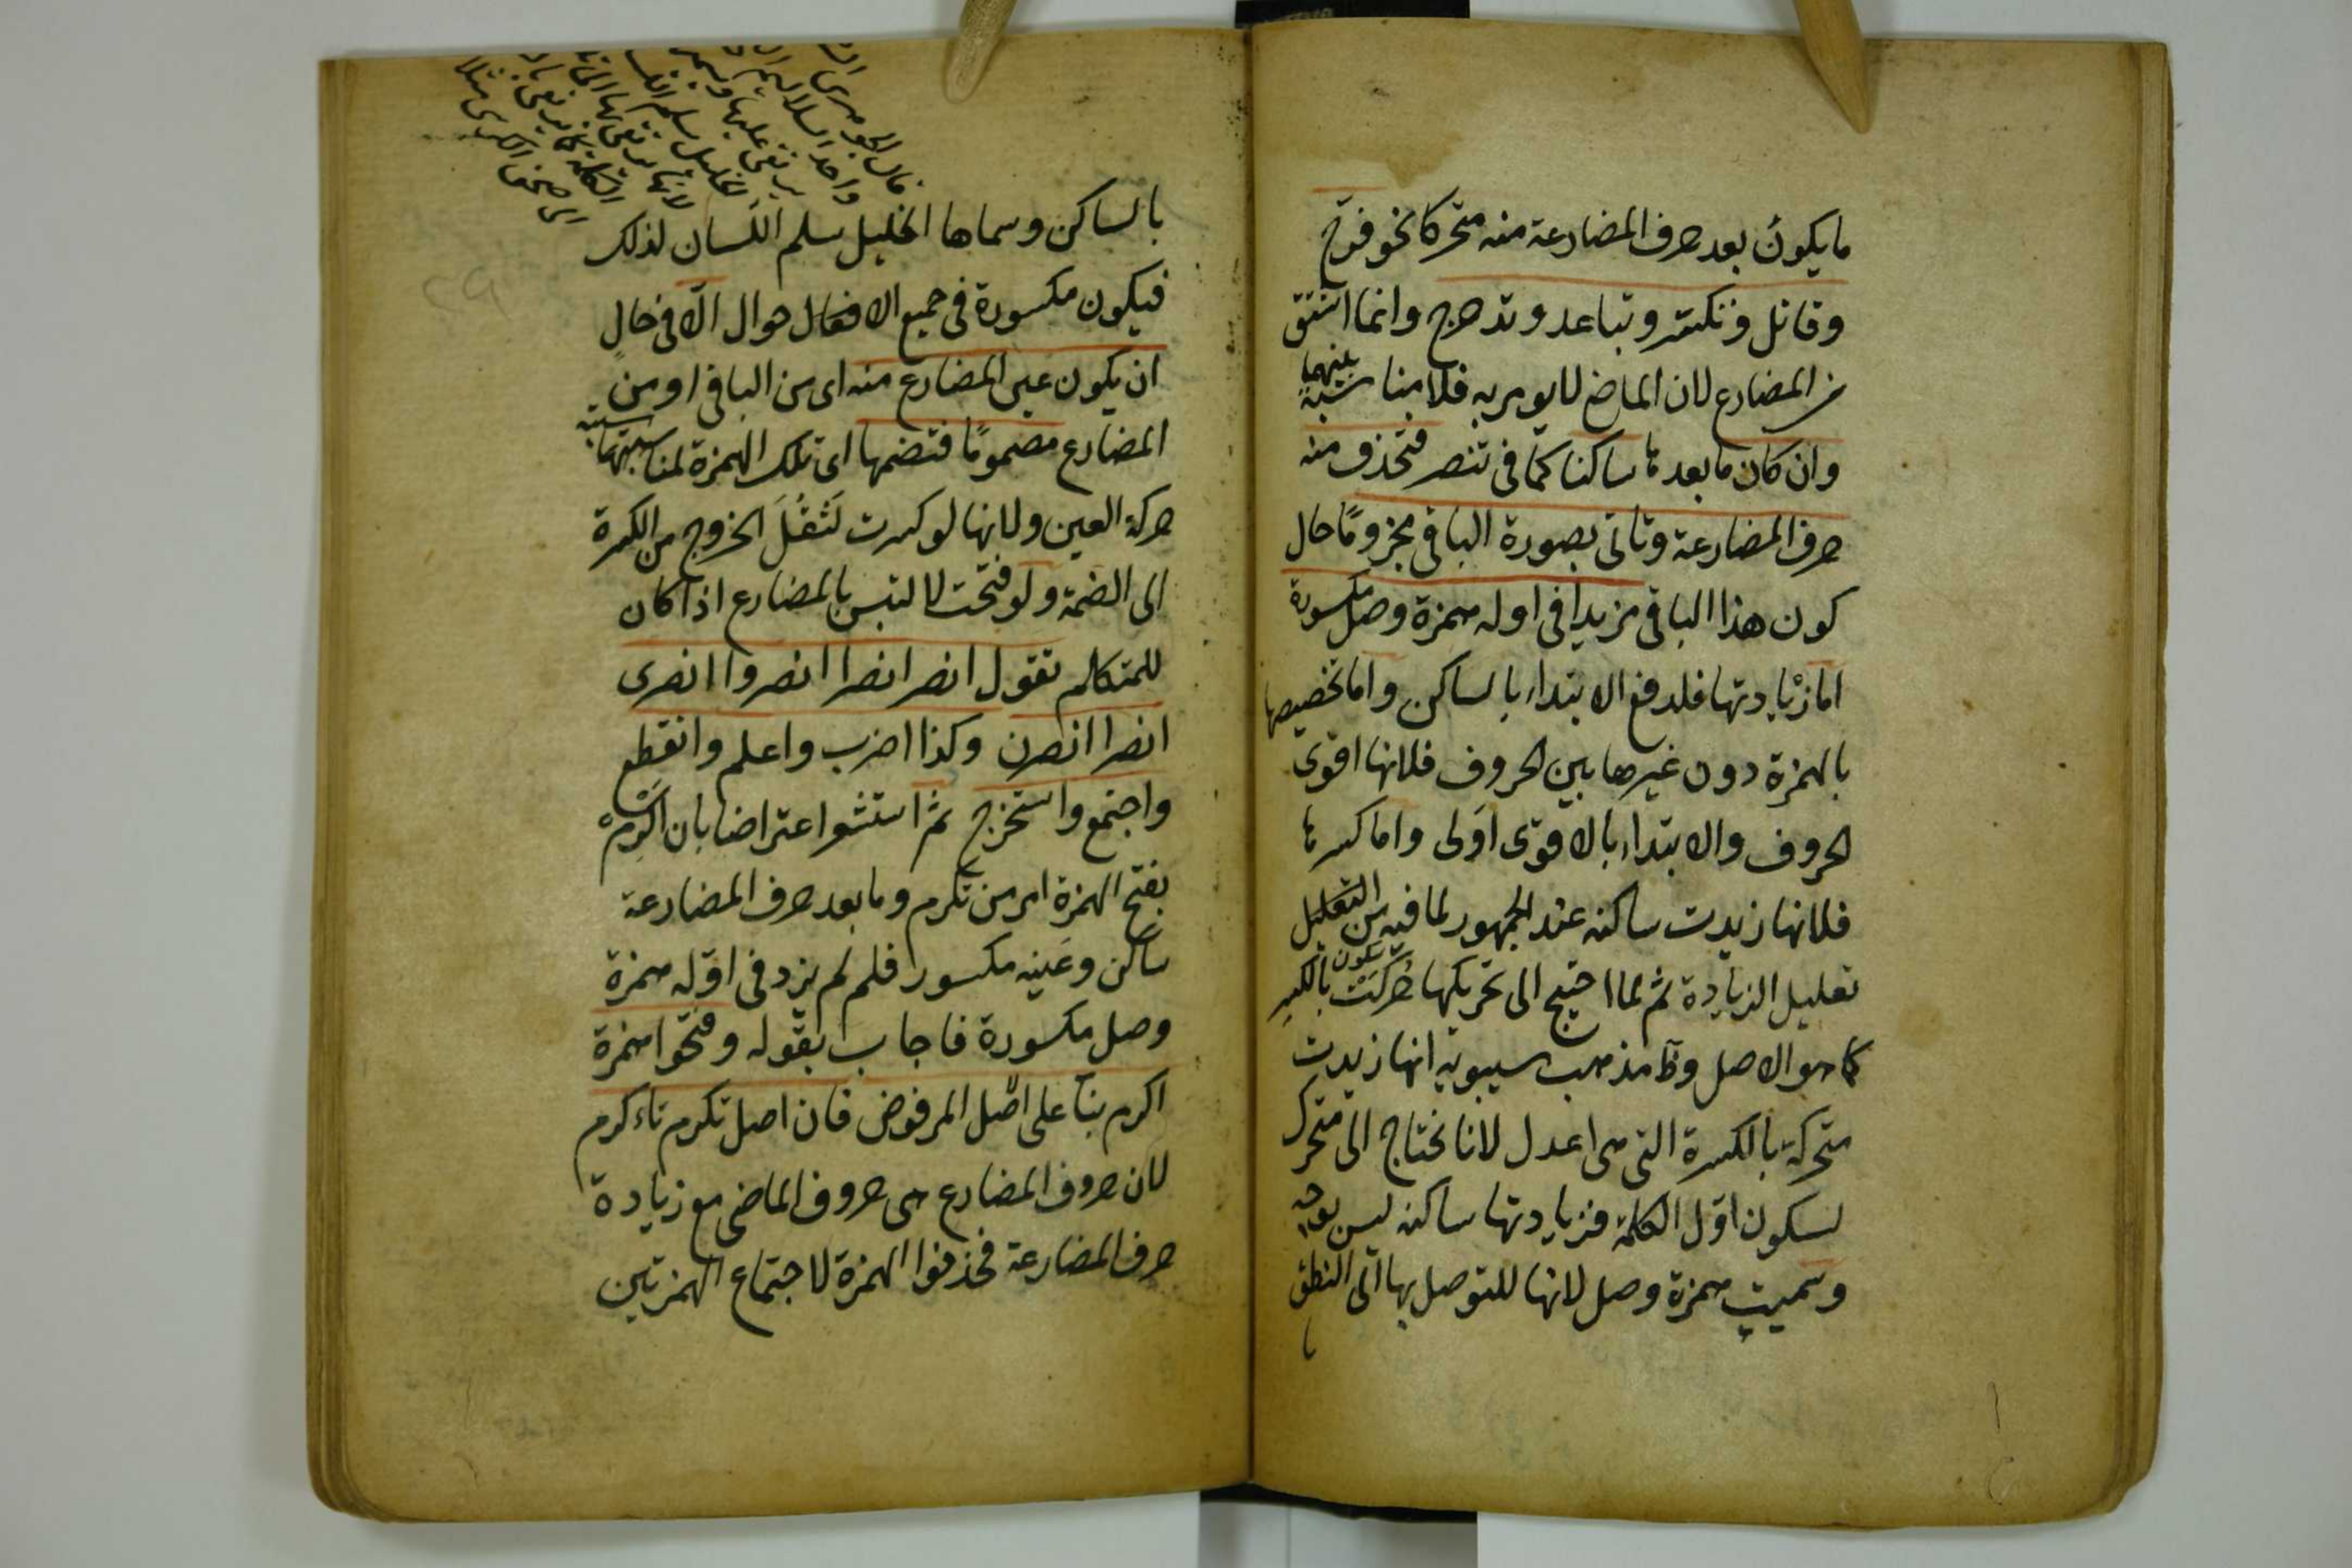 ما يكون بعد حرف المضارعة منه متحركا نحو فرح
وقاتل وتكسر وتباعد وتدحرج وانما اشتق
من المضارع لان الماضي لا يومر به فلا مناسبة بينهما
وان كان ما بعدها ساكنا كما في تنصر فتحذف منه
حرف المضارعة وتاتى بصورة الباقى مجزومًا حال
كون هذا الباقى مزيدا فى اوله همزة وصل مكسورة
اما زيادتها فلدفع الابتداء بالساكن واما تخصيصها
بالهمزة دون غيرها بين الحروف فلانها اقوى
الحروف والابتداء بالاقوى اولى واما كسرها
فلانها زيدت ساكنة عند الجمهور لما فيه من التقليل
تقليل الزيادة ثم لما احتيج الى تحريكها حركت بالكسر
كما هو الاصل وظ مذهب سيبويه انها زيدت
متحركة بالكسرة التى هى اعدل لانا نحتاج الى متحرك
لسكون اول الكلمة فزيادتها ساكنة ليس بوجه
وسميت همزة وصل لانها للتوصل بها الى النطق
قال الجوهرى
بالساكن وسماها الخليل سلم اللسان لذلك
فيكون مكسورة فى جميع الافعال حوال الّا فى حال
ان يكون عين المضارع منه اى من الباقى او من
المضارع مضمومًا فتضمها اى تلك الهمزة لمناسبتها
حركة العين ولانها لو كسرت لَثَقُلَ الخروج من الكسرة
الى الضمة ولو فتحت لالتبس بالمضارع اذا كان
للمتكلم تقول انصر انصرا انصروا انصرى
انصرا انصرن وكذا اضرب واعلم وانقطع
واجتمع واستخرج ثم استشعر اعتراضا بان اكرم
بفتح الهمزة امر من تكرم وما بعد حرف المضارعة
ساكن وعينه مكسور فلم لم يزد فى اوّله همزة
وصل مكسورة فاجاب بقوله وفتحوا همزة
اكرم بناً على اصل المرفوض فان اصل تكرم تاءكرم
لان حروف المضارع هى حروف الماضى مع زيادة
حرف المضارعة فحذفوا الهمزة لاجتماع الهمزتين